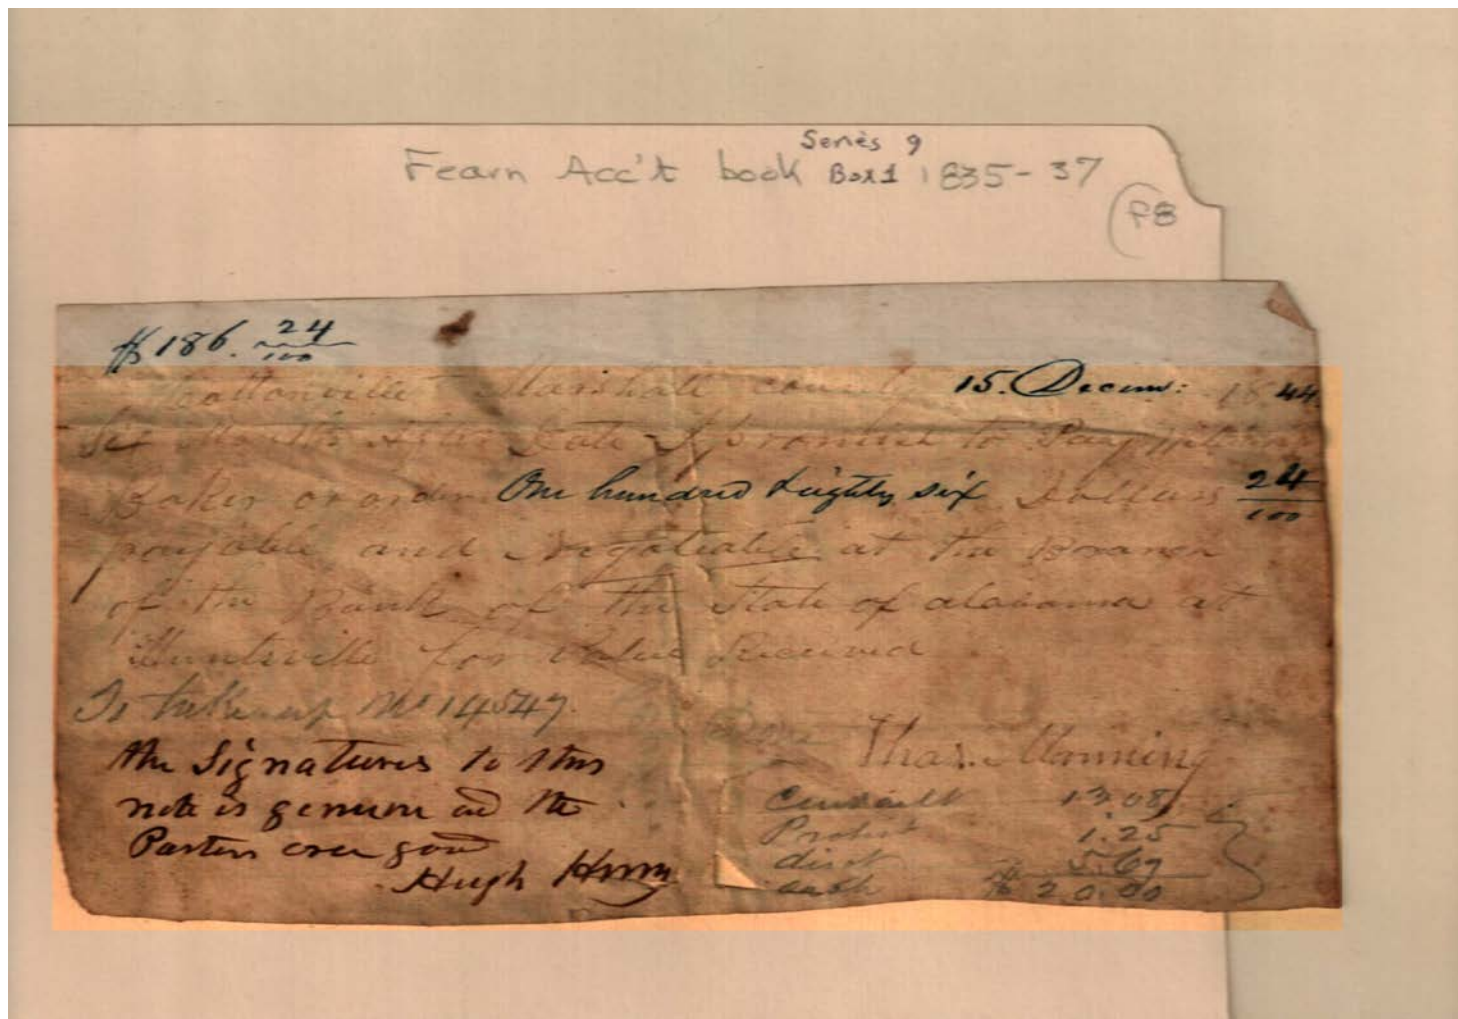 Series 9
Fearn Acc't book Box 1 1835-37
F8
$186. 24/100
Cottonville Marshall county 15. Decem: 1844
Six Months after Date I promise to Pay
Baker or order One hundred & eighty six Dollars 24/100
payable and Negotiable at the Branch
of the Bank of the State of alabama at
Huntsville for Value Received
To take up No 14547.
Thos. Manning
the Signatures to this
note is genuine and the
Parties are good
Hugh Henry
13.08
Protest 1.25
disct 5.67
cash $20.00